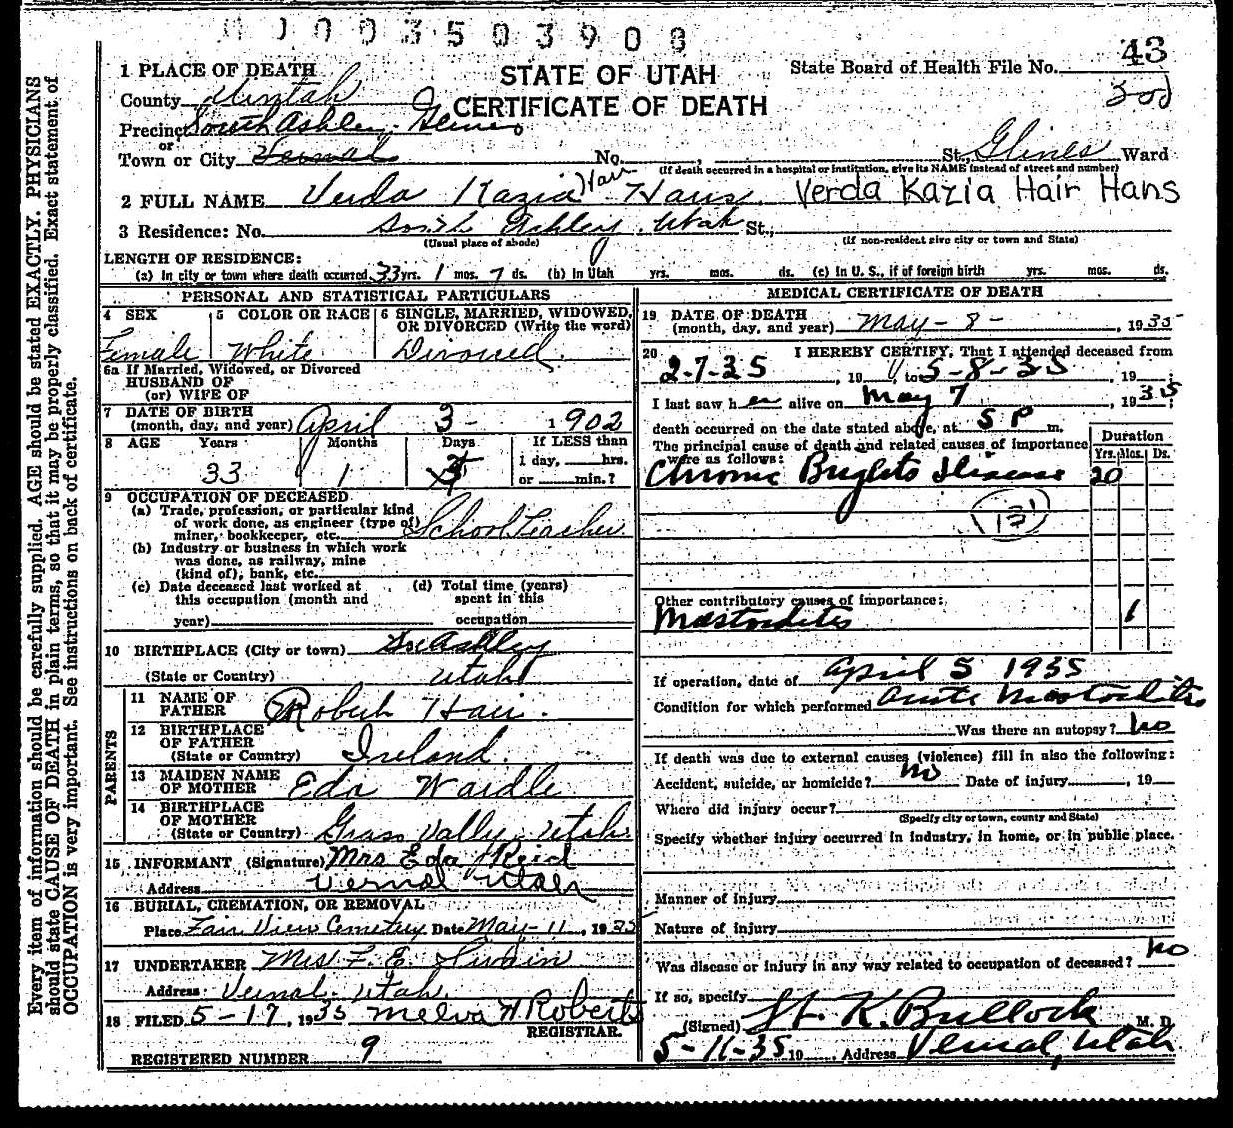 0003503908
43
1 PLACE OF DEATH
STATE OF UTAH
State Board of Health File No.
County Uintah
CERTIFICATE OF DEATH
Precinct South Ashley - Glines
or
Town or City Vernal No. , St., Glines Ward
(If death occurred in a hospital or institution, give its NAME instead of street and number)
2 FULL NAME Verda Kazia Hair Hans. Verda Kazia Hair Hans
3 Residence: No. South Ashley, Utah St.,
(Usual place of abode) (If non-resident give city or town and State)
LENGTH OF RESIDENCE:
(a) In city or town where death occurred 33 yrs. 1 mos. 7 ds. (b) In Utah yrs. mos. ds. (c) In U. S., if of foreign birth yrs. mos. ds.
PERSONAL AND STATISTICAL PARTICULARS
4 SEX Female
5 COLOR OR RACE White
6 SINGLE, MARRIED, WIDOWED, OR DIVORCED (Write the word)
Divorced.
6a If Married, Widowed, or Divorced
HUSBAND OF
(or) WIFE OF
7 DATE OF BIRTH
(month, day, and year) April 3 - 1902
8 AGE Years Months Days If LESS than
1 day, hrs.
or min.?
33 1 5
9 OCCUPATION OF DECEASED
(a) Trade, profession, or particular kind
of work done, as engineer (type of)
miner, bookkeeper, etc. School Teacher.
(b) Industry or business in which work
was done, as railway, mine
(kind of), bank, etc.
(c) Date deceased last worked at
this occupation (month and
year)
(d) Total time (years)
spent in this
occupation
10 BIRTHPLACE (City or town) So. Ashley
(State or Country) Utah
PARENTS
11 NAME OF
FATHER Robert Hair.
12 BIRTHPLACE
OF FATHER
(State or Country) Ireland.
13 MAIDEN NAME
OF MOTHER Eda Wardle
14 BIRTHPLACE
OF MOTHER
(State or Country) Grass Vally - Utah.
15 INFORMANT (Signature) Mrs Eda Reid
Address Vernal Utah
16 BURIAL, CREMATION, OR REMOVAL
Place Fair View Cemetery Date May - 11, 1935
17 UNDERTAKER Mrs F. E. Swain
Address Vernal Utah
18 FILED 5-17, 1935 Melva H Roberts
REGISTRAR.
REGISTERED NUMBER 9
MEDICAL CERTIFICATE OF DEATH
19 DATE OF DEATH
(month, day, and year) May - 8 - , 1935
20 I HEREBY CERTIFY, That I attended deceased from
2-7-35, 19 , to 5-8-35, 19 ;
I last saw her alive on May 7, 1935;
death occurred on the date stated above, at 5 P m.
The principal cause of death and related causes of importance
were as follows:
Duration
Yrs. Mos. Ds.
Chronic Brights Disease 20
131
Other contributory causes of importance:
Mastoiditis 1
If operation, date of April 5 1935
Condition for which performed Acute Mastoiditis
Was there an autopsy? No
If death was due to external causes (violence) fill in also the following:
Accident, suicide, or homicide? No Date of injury , 19
Where did injury occur?
(Specify city or town, county and State)
Specify whether injury occurred in industry, in home, or in public place.
Manner of injury
Nature of injury
Was disease or injury in any way related to occupation of deceased? No
If so, specify
(Signed) K. Bullock M. D.
5-11-35 19 , Address Vernal, Utah
Every item of information should be carefully supplied. AGE should be stated EXACTLY. PHYSICIANS
should state CAUSE OF DEATH in plain terms, so that it may be properly classified. Exact statement of
OCCUPATION is very important. See instructions on back of certificate.